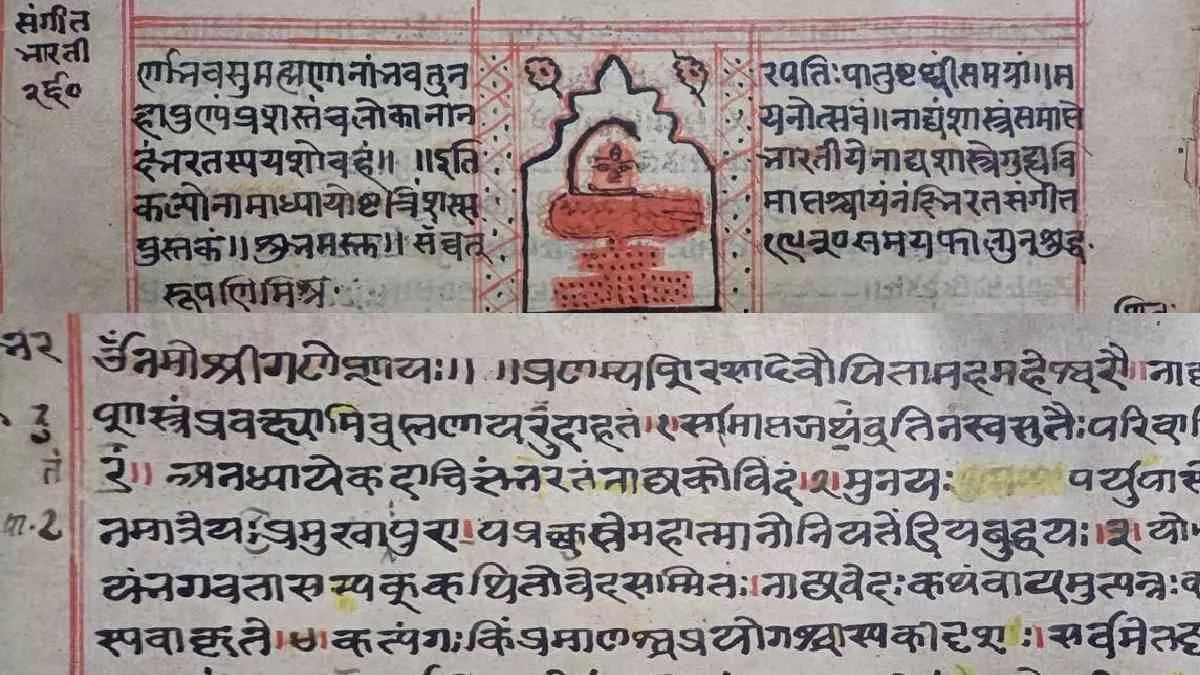 संगीत
भारती
२६०
र्णनवसुमह्मणनांनवतुन
रपतिःपातुष्टथ्वीसमग्रां॥म
हापुण्यंप्रशस्तंचलोकानांन
यनोत्सवं॥नाद्यंशास्त्रंसमाप्ते
यशोवहं॥ ॥इति
भारतीयेनाद्यशास्त्रेगुह्यवि
कल्पोनामाध्यायोष्टत्रिंशस्स
माप्तश्चायंनंदिभरतसंगीत
पुस्तकं॥शुभमस्तु॥संवत्
समयफाल्गुनशुद्ध
रूपणिमिश्र
भर
ॐनमोश्रीगणेशायः॥ ॥प्रणम्यशिरसादेवौपितामहमहेश्वरौ॥ना
शास्त्रंप्रवक्ष्यामिब्रह्मणायदुदाहृतं॥१॥समाप्तजप्यंव्रतिनंस्वसुतैःपरिवा
अनध्यायेकदाचित्तुभरतंनाद्यकोविदं॥२॥मुनयः पर्युपास्ये
नमात्रेयःप्रमुखापुरा॥पप्रच्छुस्तेमहात्मानोनियतेंद्रियबुद्धयः॥३॥यो
यंभगवतासम्यक्कथितोवेदसम्मितः॥नाद्यवेदःकथंवाद्यमुत्पन्नः
स्यवाकृते॥४॥कत्यंगःकिंप्रमाणश्चप्रयोगश्चास्यकीदृशः॥सर्वमेतद्य